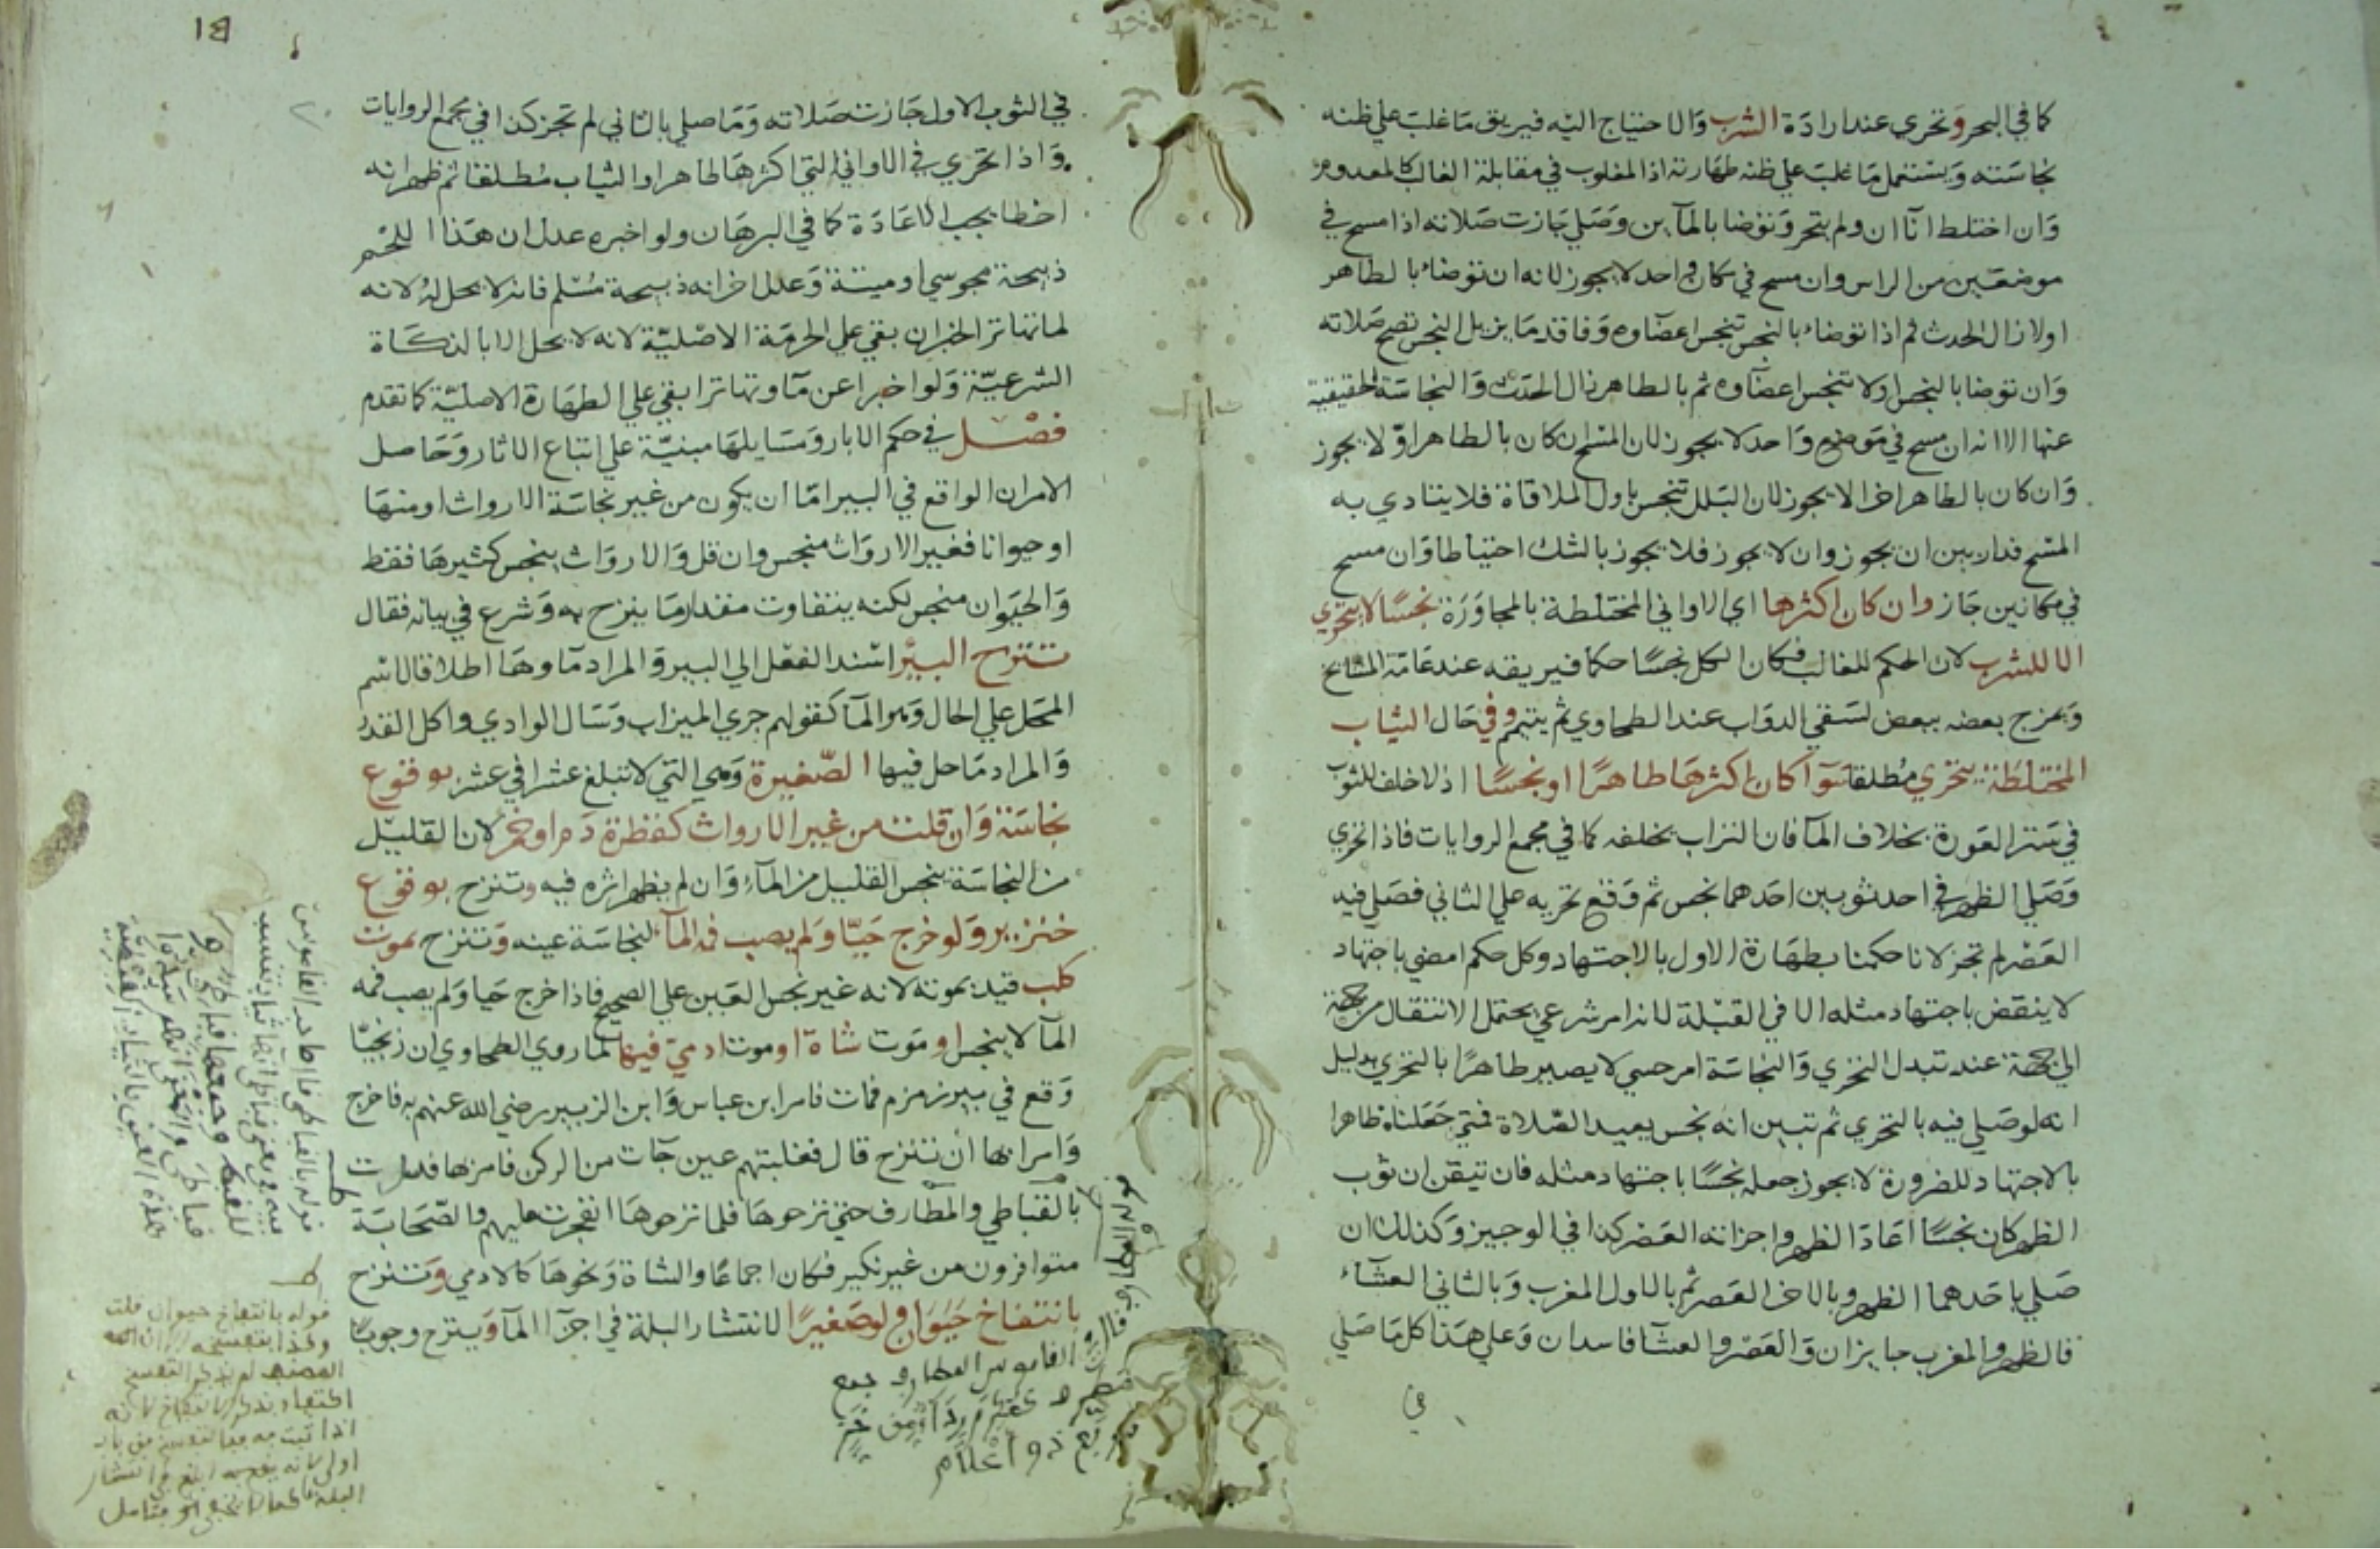 كما في البحر وتحري عند ارادة الشرب والاحتياج اليه فيريق ما غلب علي ظنه
نجاسته ويستعمل ما غلب علي ظنه طهارته اذ المغلوب في مقابلة الغالب كالمعدوم
وان اختلط اناان ولم يتحر وتوضا بالمآين وصلي جازت صلاته اذا مسح في
موضعين من الراس وان مسح في مكان واحد لا يجوز لانه ان توضاء بالطاهر
اولا زال الحدث ثم اذا توضاء بالنجس تنجس اعضآوه وفاقد ما يزيل النجس تصح صلاته
وان توضا بالنجس اولا تنجس اعضآوه ثم بالطاهر زال الحدث والنجاسة الحقيقية
عنها الا انه ان مسح في موضع واحد لا يجوز لان المسح ان كان بالطاهر اولا يجوز
وان كان بالطاهر اخرا لا يجوز لان البلل تنجس باول الملاقاة فلا يتادي به
المسح فدار بين ان يجوز وان لا يجوز فلا يجوز بالشك احتياطا وان مسح
في مكانين جاز وان كان اكثرها اي الاواني المختلطة بالمجاورة نجسًا لا يتحري
الا للشرب لان الحكم للغالب فكان الكل نجسًا حكما فيريقه عند عامة المشايخ
ويمزج بعضه ببعض لسقي الدواب عند الطحاوي ثم يتيمم وفي حال الثياب
المختلطة يتحري مطلقا سوآ كان اكثرها طاهرًا او نجسًا اذ لا خلف للثوب
في ستر العورة بخلاف المآ فان التراب يخلفه كما في مجمع الروايات فاذا تحري
وصلي الظهر في احد ثوبين احدهما نجس ثم وقع تحريه علي الثاني فصلي فيه
العصر لم تجز لانا حكمنا بطهارة الاول بالاجتهاد وكل حكم امضي باجتهاد
لا ينقض باجتهاد مثله الا في القبلة لانه امر شرعي يحتمل الانتقال من جهة
الي جهة عند تبدل التحري والنجاسة امر حسي لا يصير طاهرًا بالتحري بدليل
انه لو صلي فيه بالتحري ثم تبين انه نجس يعيد الصلاة فمتي جعلناه طاهرا
بالاجتهاد للضرورة لا يجوز جعله نجسًا باجتهاد مثله فان تيقن ان ثوب
الظهر كان نجسًا اعاد الظهر واجزاته العصر كذا في الوجيز وكذلك ان
صلي باحدهما الظهر وبالاخر العصر ثم بالاول المغرب وبالثاني العشآء
فالظهر والمغرب جايزان والعصر والعشآ فاسدان وعلي هذا كل ما صلي
في
في الثوب الاول جازت صلاته وما صلي بالثاني لم تجز كذا في مجمع الروايات
واذا تحري في الاواني التي اكثرها طاهر او الثياب مطلقا ثم ظهر انه
اخطا يجب الاعادة كما في البرهان ولو اخبره عدل ان هذا اللحم
ذبيحة مجوسي او ميتة وعدل اخر انه ذبيحة مسلم فانه لا يحل له لانه
لما تهاتر الخبران بقي علي الحرمة الاصلية لانه لا يحل الا بالذكاة
الشرعية ولو اخبرا عن مآ وتهاترا بقي علي الطهارة الاصلية كما تقدم
فصل في حكم الابار ومسايلها مبنية علي اتباع الاثار وحاصل
الامر ان الواقع في البير اما ان يكون من غير نجاسة الارواث او منها
او حيوانا فغير الارواث منجس وان قل والارواث ينجس كثيرها فقط
والحيوان منجس لكنه يتفاوت مقدار ما ينزح به وشرع في بيانه فقال
تنزح البير اسند الفعل الي البير والمراد مآوها اطلاقا لاسم
المحل علي الحال وهو المآ كقولهم جري الميزاب وسال الوادي واكل القدر
والمراد ما حل فيها الصغيرة وهي التي لا تبلغ عشرا في عشر بوقوع
نجاسة وان قلت من غير الارواث كقطرة دم او خمر لان القليل
من النجاسة ينجس القليل من المآء وان لم يظهر اثره فيه وتنزح بوقوع
خنزير ولو خرج حيًا ولم يصب فمه المآ لنجاسة عينه وتنزح بموت
كلب قيد بموته لانه غير نجس العين علي الصحيح فاذا خرج حيا ولم يصب فمه
المآ لا ينجس او موت شاة او موت ادمي فيها لما روي الطحاوي ان زنجيًا
وقع في بير زمزم فمات فامر ابن عباس وابن الزبير رضي الله عنهم به فاخرج
وامرا بها ان تنزح قال فغلبتهم عين جآت من الركن فامر بها فدسرت
بالقباطي والمطارف حتي نزحوها فلما نزحوها انفجرت عليهم والصحابة
متوافرون من غير نكير فكان اجماعًا والشاة ونحوها كالادمي وتنزح
بانتفاخ حيوان ولو صغيرًا لانتشار البلة في اجزآ المآ وينزح وجوبًا
قوله المطارف قال
القاموس المطارف جمع
مطرف كمكرم ردآ من خز
مربع ذو اعلام
قوله بالقباطي
ط
قوله بانتفاخ حيوان قلت
وكذا بتفسخه
المصنف لم يذكر التفسخ
اكتفاء بذكر الانتفاخ لانه
البلة كما لا يخفي